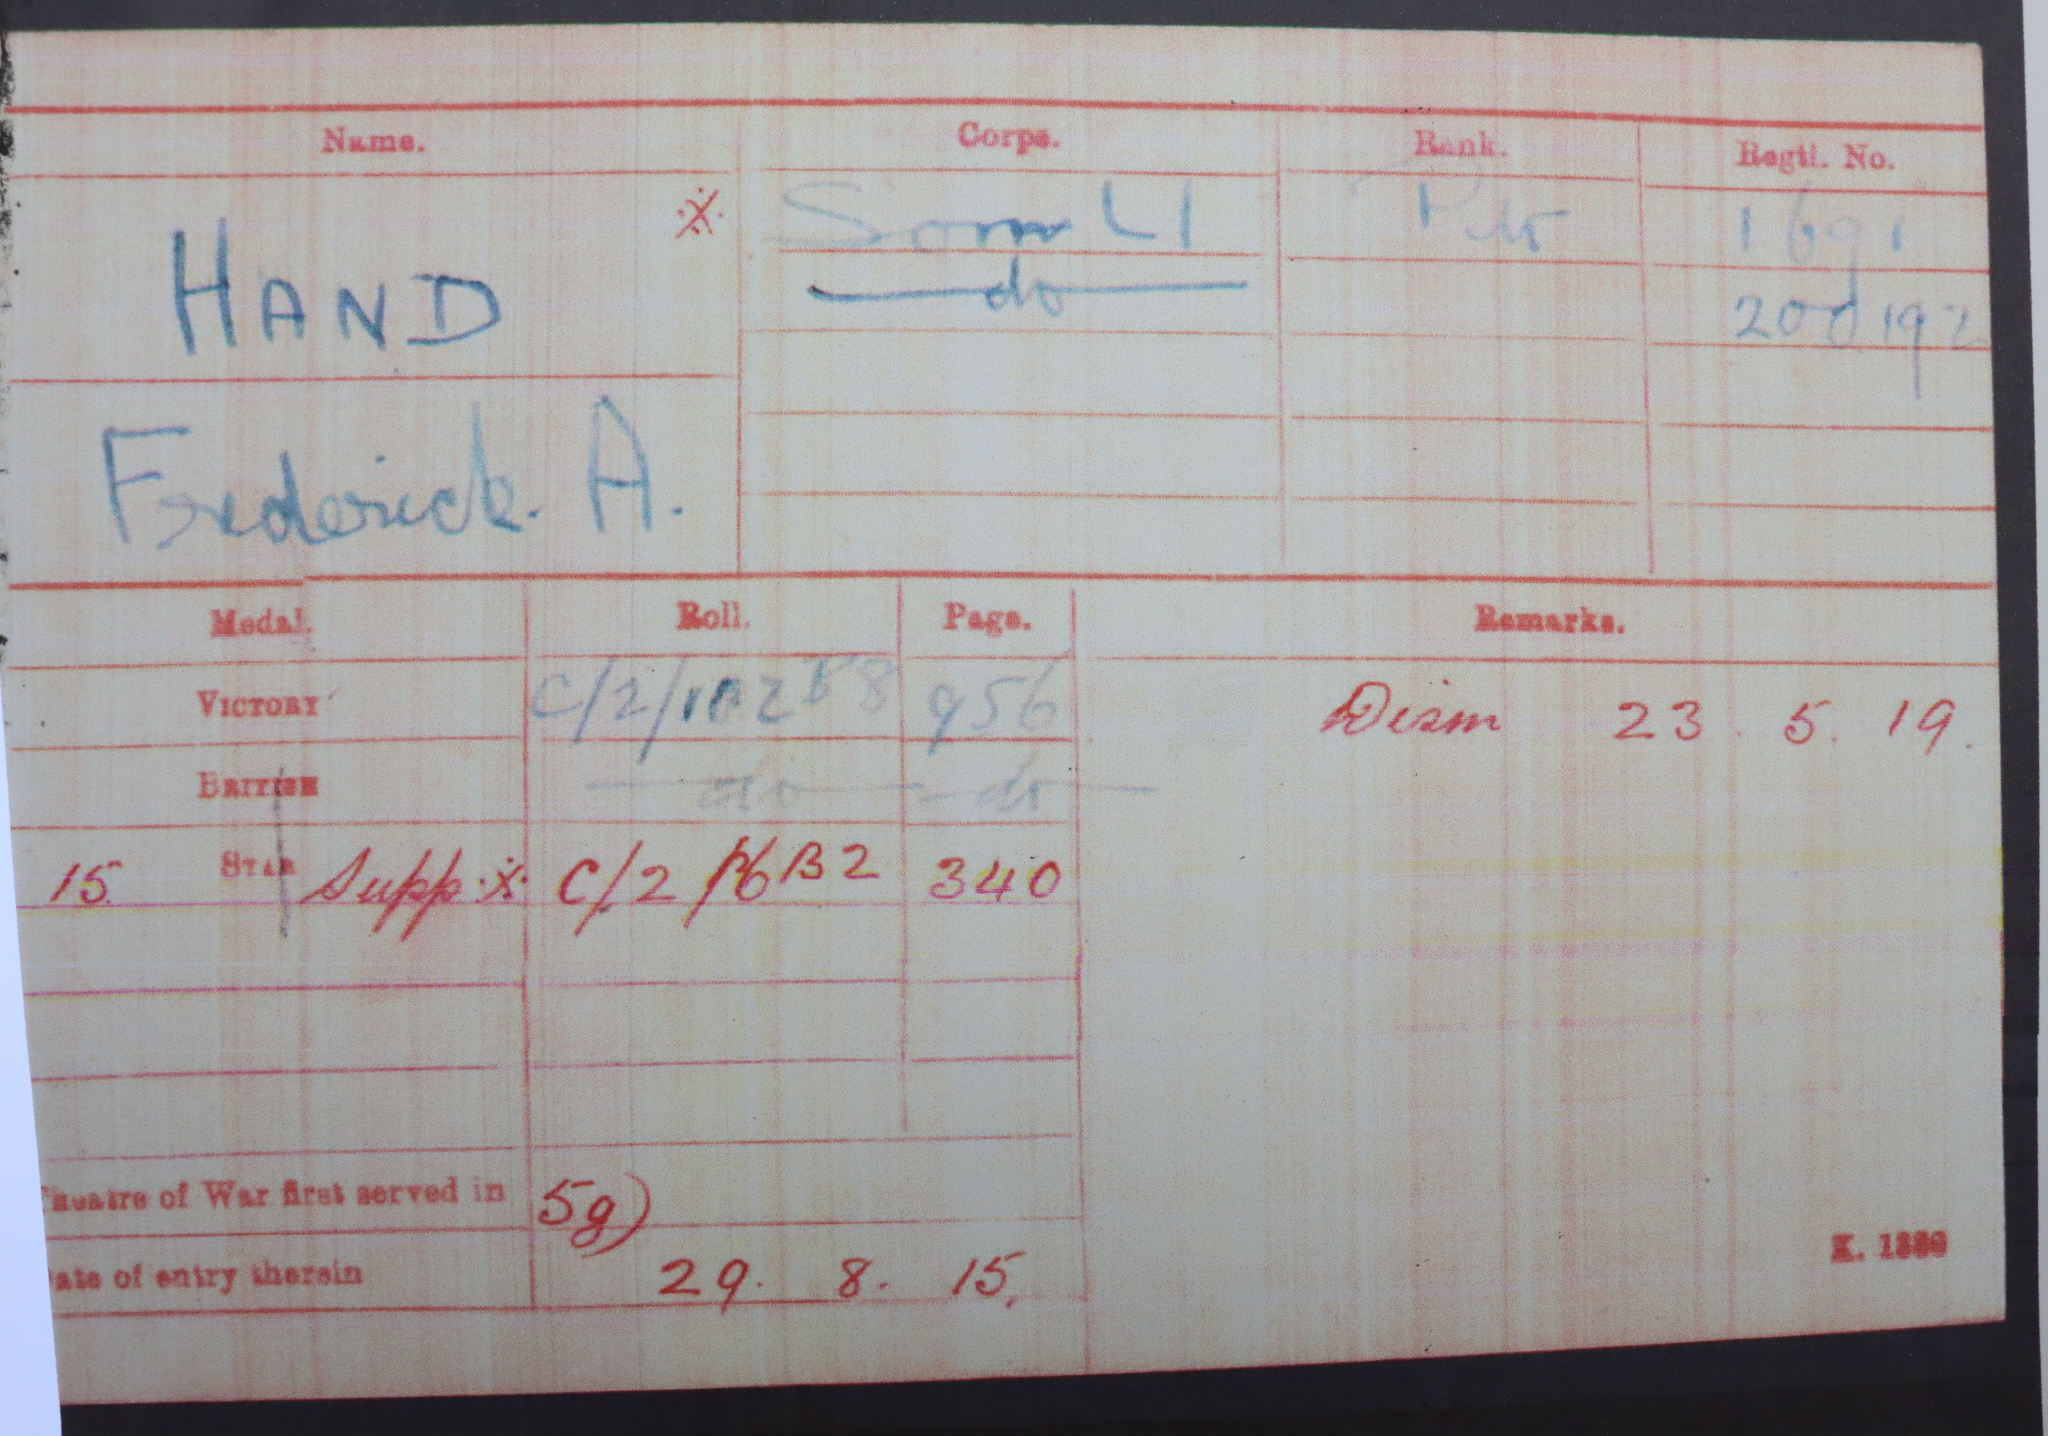 Name. Corps. Rank. Regtl. No.
HAND ※ Som LI Pte 1691
do 200192
Frederick. A.
Medal. Roll. Page. Remarks.
VICTORY C/2/102 B8 956 Disem 23. 5. 19.
BRITISH do do
15 STAR Supp ※ C/2/6 B2 340
Theatre of War first served in 5g)
Date of entry therein 29. 8. 15.
K. 1380